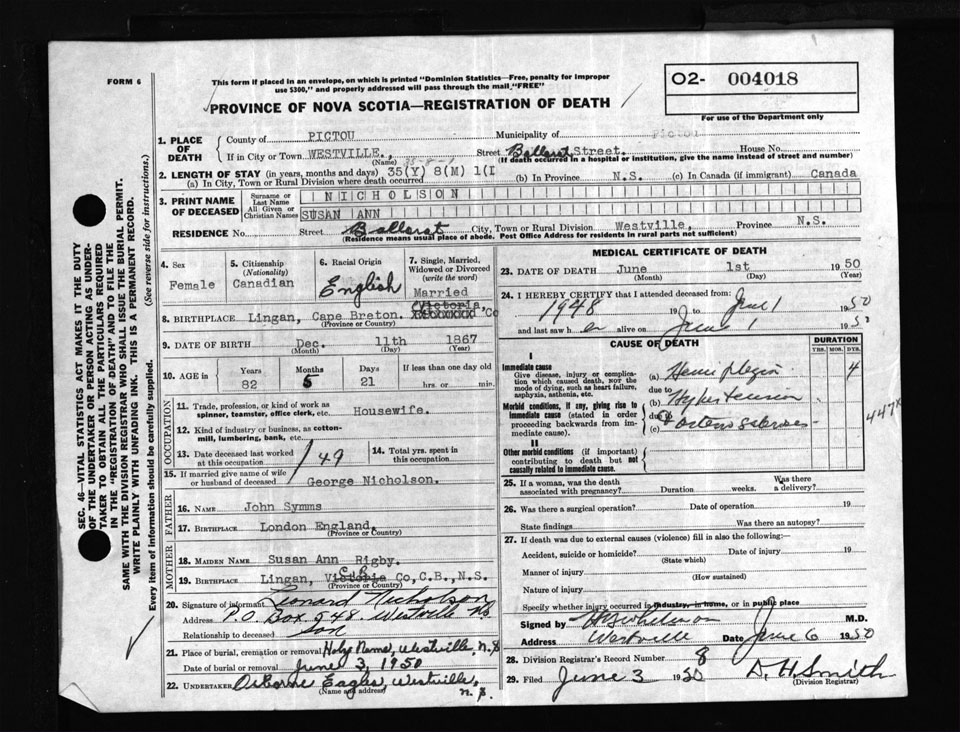 FORM 6
This form if placed in an envelope, on which is printed "Dominion Statistics—Free, penalty for improper
use $300," and properly addressed will pass through the mail "FREE"
PROVINCE OF NOVA SCOTIA—REGISTRATION OF DEATH
O2- 004018
For use of the Department only
1. PLACE OF DEATH
County of PICTOU Municipality of Pictou
If in City or Town WESTVILLE., Street Ballarat Street. House No.
(Name) (If death occurred in a hospital or institution, give the name instead of street and number)
35-8-1
2. LENGTH OF STAY (in years, months and days) 35(Y) 8(M) 1(I
(a) In City, Town or Rural Division where death occurred (b) In Province N.S. (c) In Canada (if immigrant) Canada
3. PRINT NAME OF DECEASED
Surname or Last Name NICHOLSON
All Given or Christian Names SUSAN ANN
RESIDENCE No. Street Ballarat City, Town or Rural Division Westville, Province N.S.
(Residence means usual place of abode. Post Office Address for residents in rural parts not sufficient)
4. Sex Female
5. Citizenship (Nationality) Canadian
6. Racial Origin English
7. Single, Married, Widowed or Divorced (write the word) Married
Victoria,
8. BIRTHPLACE Lingan, Cape Breton. Richmond Co
(Province or Country)
9. DATE OF BIRTH Dec. 11th 1867
(Month) (Day) (Year)
10. AGE in Years 82 Months 5 Days 21 If less than one day old hrs. or min.
OCCUPATION
11. Trade, profession, or kind of work as spinner, teamster, office clerk, etc. Housewife.
12. Kind of industry or business, as cotton-mill, lumbering, bank, etc.
13. Date deceased last worked at this occupation 1/49 14. Total yrs. spent in this occupation
15. If married give name of wife or husband of deceased George Nicholson.
FATHER
16. Name John Symms
17. Birthplace London England.
(Province or Country)
MOTHER
18. Maiden Name Susan Ann Rigby.
19. Birthplace Lingan, Victoria C.B. Co,C.B.,N.S.
(Province or Country)
20. Signature of informant Lenard Nicholson
Address P.O. Box 248 Westville N.S.
Relationship to deceased son
21. Place of burial, cremation or removal Holy Name, Westville, N.S
Date of burial or removal June 3, 1950
22. Undertaker Osborne Eagles, Westville, N.S.
(Name and address)
MEDICAL CERTIFICATE OF DEATH
23. DATE OF DEATH June 1st 1950
(Month) (Day) (Year)
24. I HEREBY CERTIFY that I attended deceased from:
1948 19 to June 1 1950
and last saw her alive on June 1 1950
CAUSE OF DEATH
DURATION
YRS. MOS. DYS.
I
Immediate cause
Give disease, injury or complication which caused death, NOT the mode of dying, such as heart failure, asphyxia, asthenia, etc.
(a) Hemiplegia 4
due to
Morbid conditions, if any, giving rise to immediate cause (stated in order proceeding backwards from immediate cause).
(b) Hypertension
due to
(c) Arteriosclerosis
447X
II
Other morbid conditions (if important) contributing to death but not causally related to immediate cause.
25. If a woman, was the death associated with pregnancy? Duration weeks. Was there a delivery?
26. Was there a surgical operation? Date of operation 19
State findings Was there an autopsy?
27. If death was due to external causes (violence) fill in also the following:—
Accident, suicide or homicide? Date of injury 19
(State which)
Manner of injury
(How sustained)
Nature of injury
Specify whether injury occurred in industry, in home, or in public place
Signed by M.D.
Address Westville Date June 6 1950
28. Division Registrar's Record Number 8
29. Filed June 3 1950 D. H. Smith
(Division Registrar)
SEC. 46—VITAL STATISTICS ACT MAKES IT THE DUTY
OF THE UNDERTAKER OR PERSON ACTING AS UNDER-
TAKER TO OBTAIN ALL THE PARTICULARS REQUIRED
IN THE "REGISTRATION OF DEATH" AND TO FILE THE
SAME WITH THE DIVISION REGISTRAR WHO SHALL ISSUE THE BURIAL PERMIT.
WRITE PLAINLY WITH UNFADING INK. THIS IS A PERMANENT RECORD.
Every item of information should be carefully supplied. (See reverse side for instructions.)